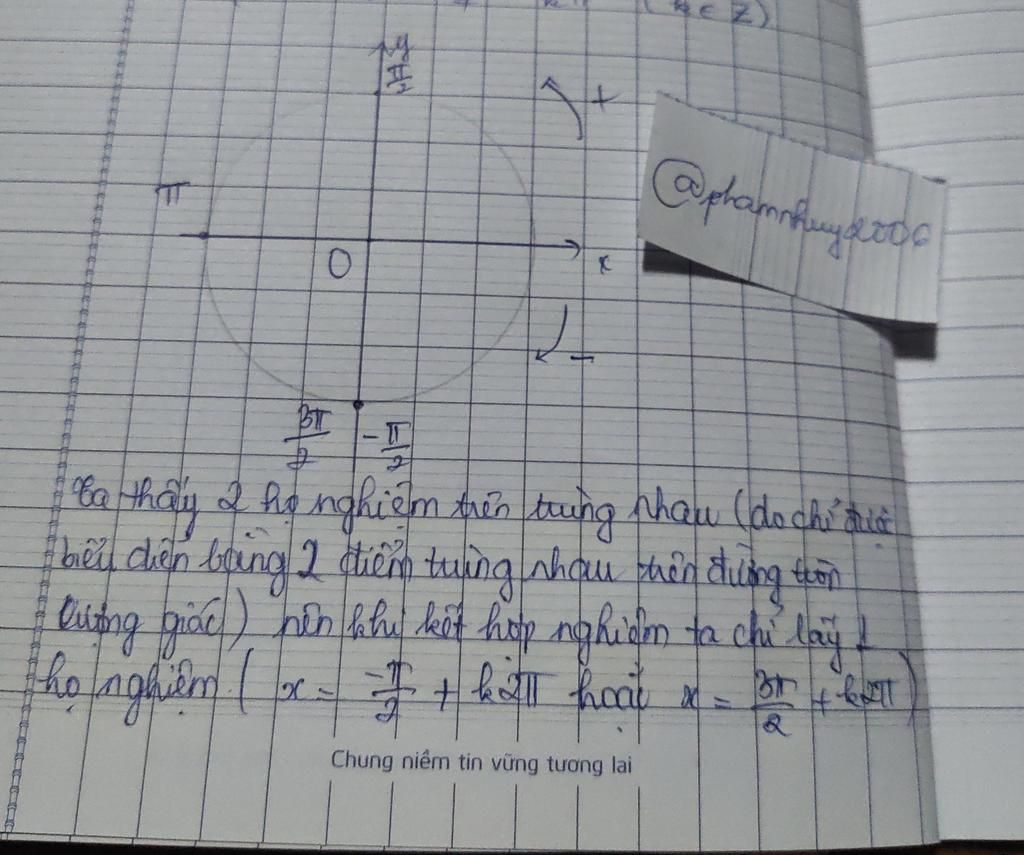 (k ∈ Z)
y
π/2
+
@phamnhuy2006
π
O
x
−
3π/2 −π/2
Ta thấy 2 họ nghiệm trên trùng nhau (do chỉ được
biểu diễn bằng 2 điểm trùng nhau trên đường tròn
lượng giác) nên khi kết hợp nghiệm ta chỉ lấy 1
họ nghiệm. (x = −π/2 + k2π hoặc x = 3π/2 + k2π)
Chung niềm tin vững tương lai